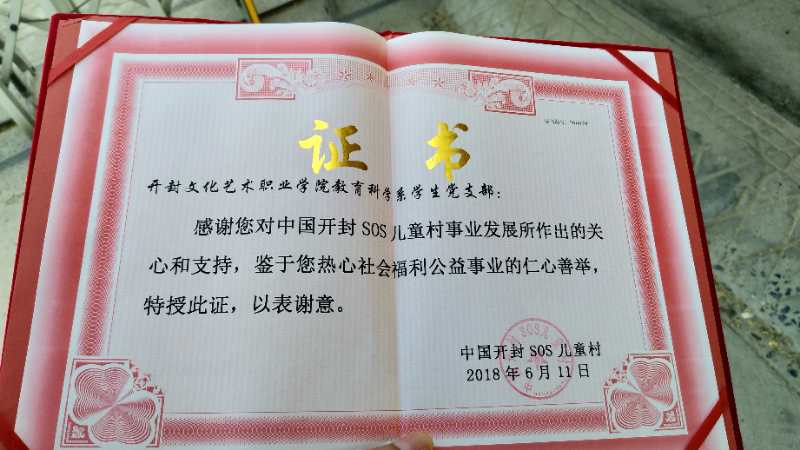 证书
开封文化艺术职业学院教育科学系学生党支部：
感谢您对中国开封SOS儿童村事业发展所作出的关
心和支持，鉴于您热心社会福利公益事业的仁心善举，
特授此证，以表谢意。
中国开封SOS儿童村
2018年6月11日